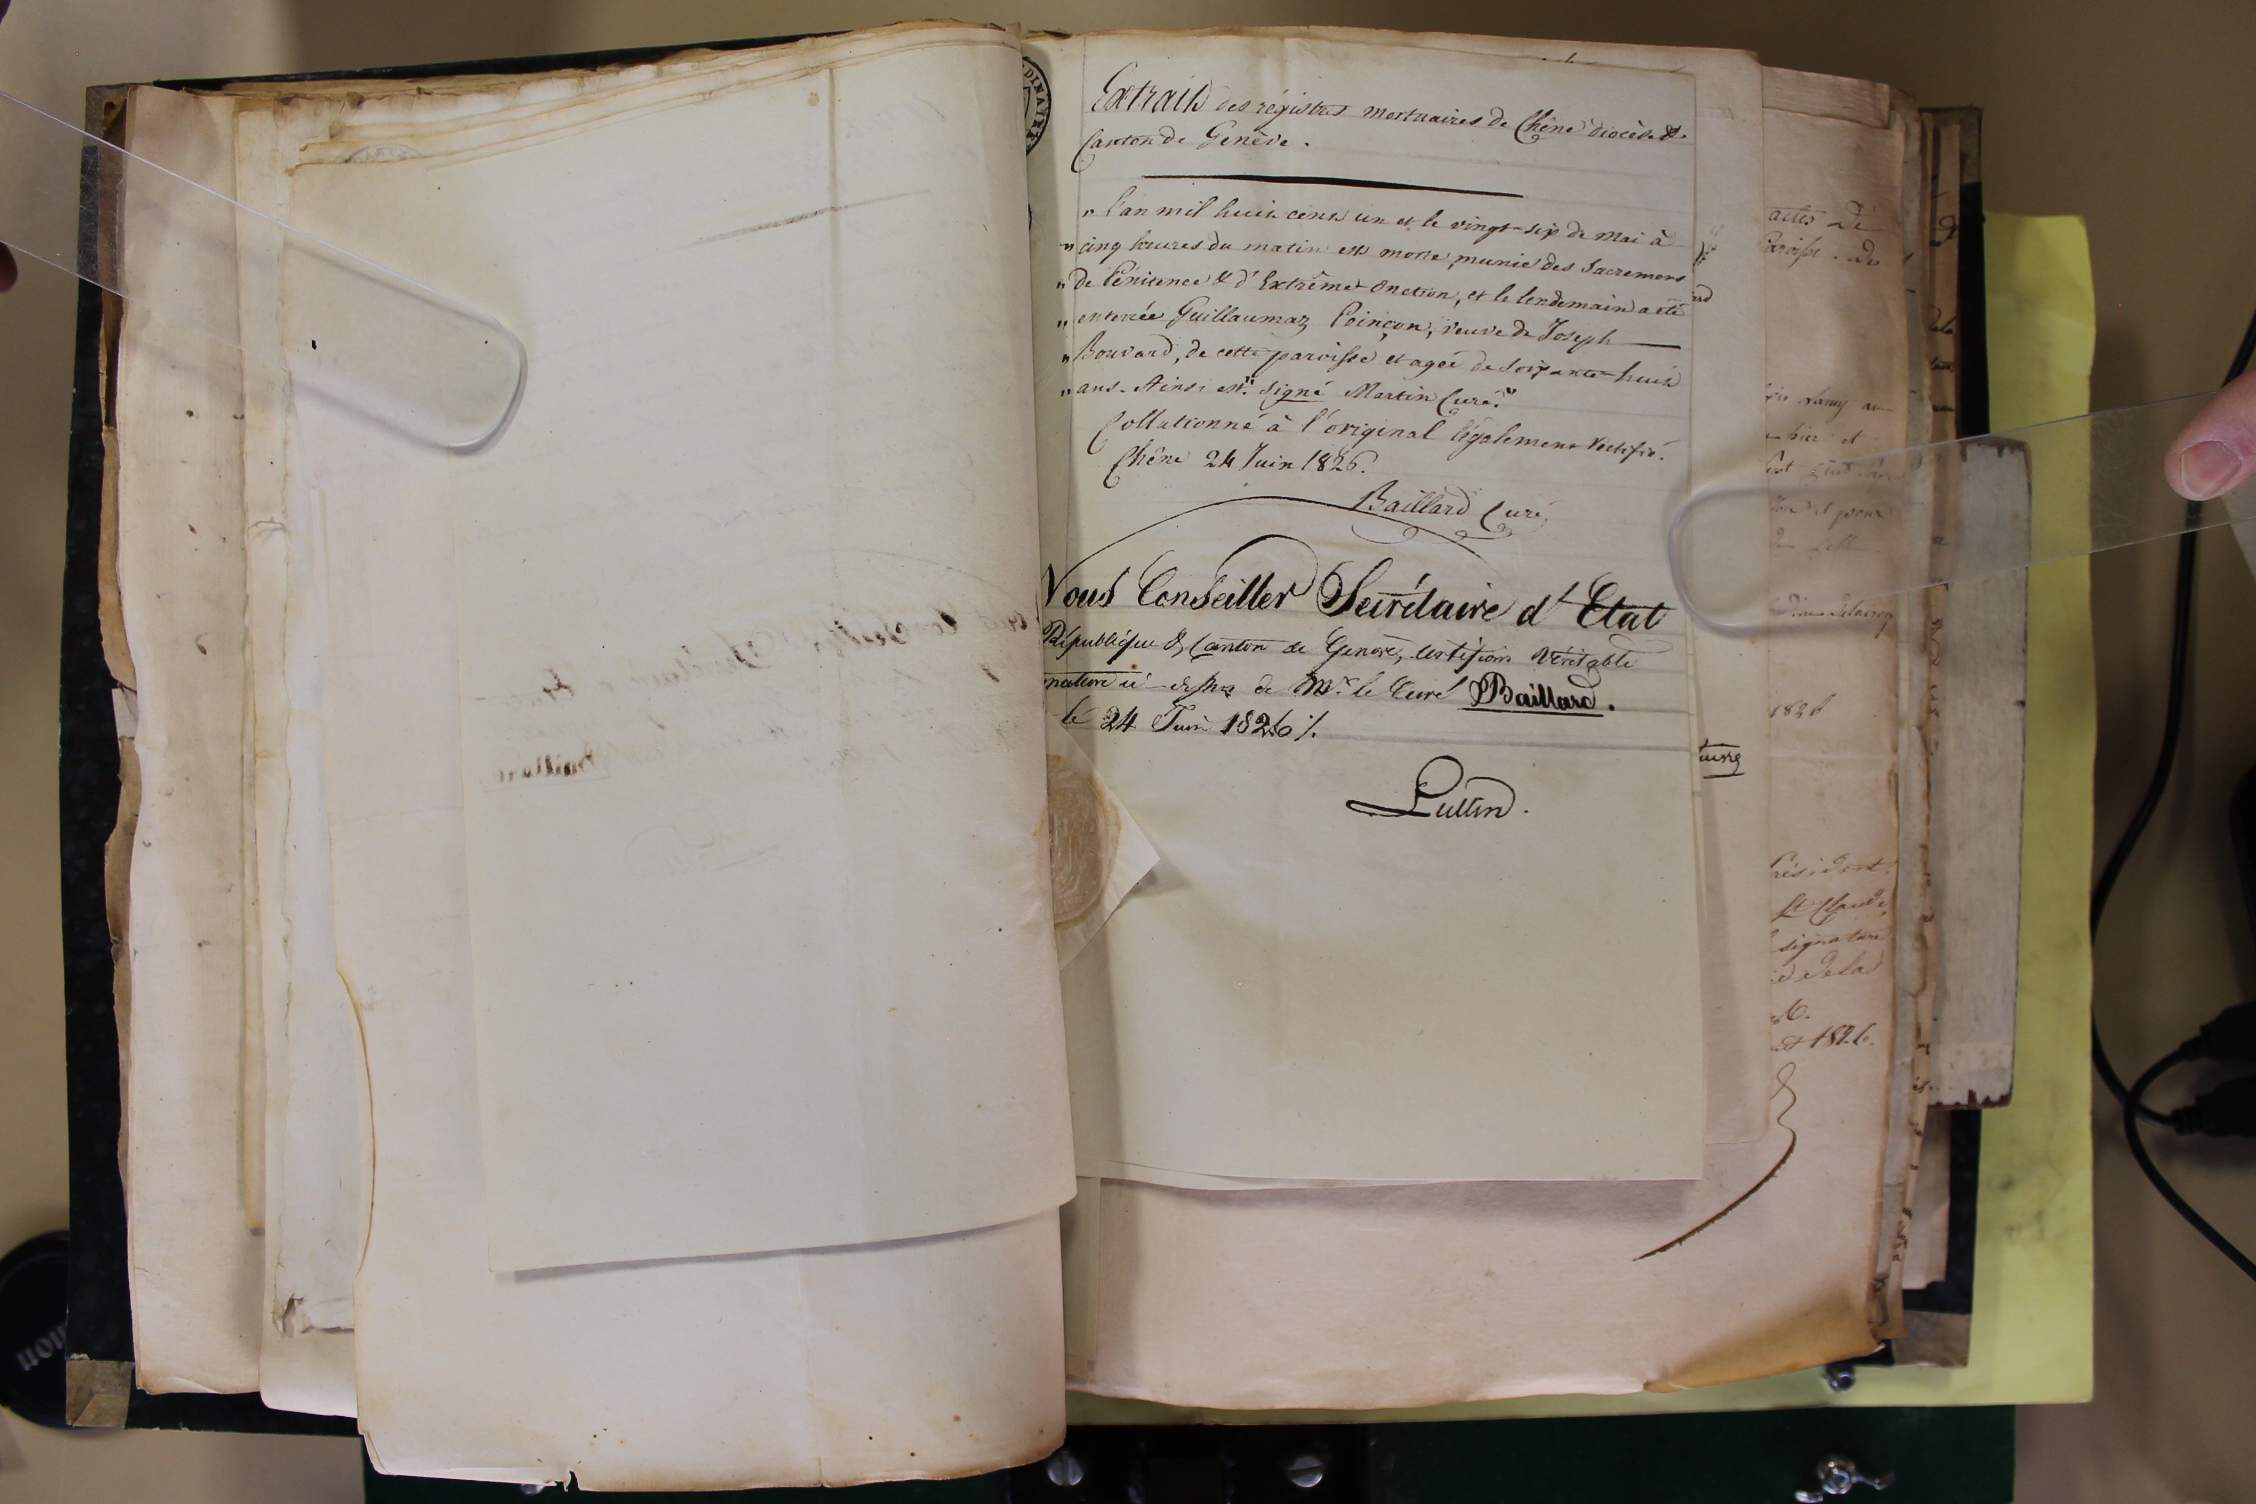 Extrait des régistres mortuaires de Chêne diocèse &
Canton de Genève.
" l'an mil huit cent un et le vingt-six de Mai à
" cinq heures du matin est morte, munie des Sacremens
" de Pénitence & d'Extrême-Onction, et le lendemain a été
" enterrée Guillaumaz Poinçon, veuve de Joseph
" Bouvard, de cette paroisse et agée de soixante-huit
" ans. Ainsi est: signé Martin Curé."
Collationné à l'original légalement rectifié.
Chêne 24 Juin 1826.
Baillard Curé
Nous Conseiller Secrétaire d'Etat
République & Canton de Genève, certifions véritable
ci-dessus de Mr. le Curé Baillard.
le 24 Juin 1826 /.
Lullin.
actes de
Paroisse de
hier et
1826
uivre
Président
St Claude,
signature
de la
1826.